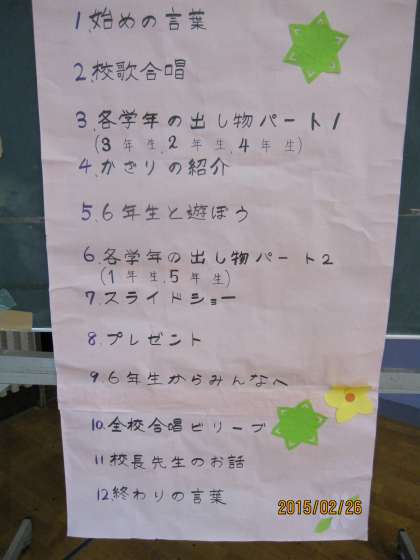 1.始めの言葉
2.校歌合唱
3.各学年の出し物パート1
(3年生.2年生.4年生)
4.かざりの紹介
5.6年生と遊ぼう
6.各学年の出し物パート2
(1年生.5年生)
7.スライドショー
8.プレゼント
9.6年生からみんなへ
10.全校合唱ビリーブ
11校長先生のお話
12終わりの言葉
2015/02/26